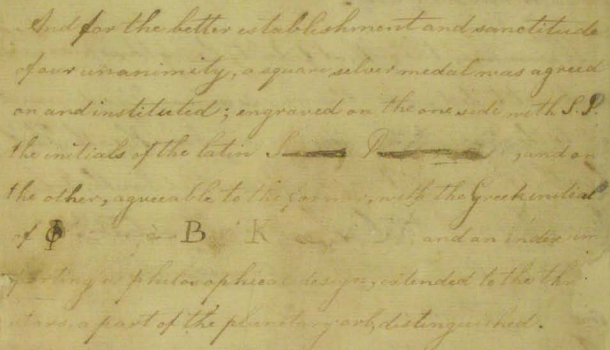 And for the better establishment and sanctitude
of our unanimity, a square silver medal was agreed
on and instituted; engraved on the one side with S.P.
the initials of the latin S P , and on
the other, agreeable to the former, with the Greek initial
of Φ B K and an index im
porting a philosophical design, extended to the three
stars, a part of the planetary orb, distinguished.